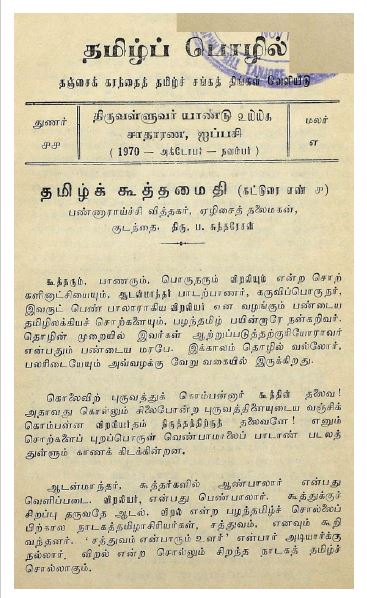 தமிழ்ப் பொழில்
தஞ்சைக் கரந்தைத் தமிழ்ச் சங்கத் திங்கள் வெளியீடு
துணர்
௪௪
திருவள்ளுவர் யாண்டு
சாதாரண, ஐப்பசி
( 1970 — அக்டோபர் - நவம்பர் )
மலர்
எ
தமிழ்க் கூத்தமைதி (கட்டுரை எண் ௪)
பண்ணாராய்ச்சி வித்தகர், ஏழிசைத் தலைமகன்,
குடந்தை, திரு. ப. சுந்தரேசன்
கூத்தரும், பாணரும், பொருநரும் விறலியும் என்ற சொற்
களினாட்சியையும், ஆடன்மாந்தர் பாடற்பாணர், கருவிப்பொருநர்,
இவருட் பெண் பாலாராகிய விறலியர் என வழங்கும் பண்டைய
தமிழிலக்கியச் சொற்களையும், பழந்தமிழ் பயின்றாரே நன்கறிவர்.
தொழின் முறையில் இவர்கள் ஆற்றுப்படுத்தற்குரியோராவர்
என்பதும் பண்டைய மரபே. இக்காலம் தொழில் வல்லோர்,
பலரிடையேயும் அவ்வழக்கு வேறு வகையில் இருக்கிறது.
கொலைவிற் புருவத்துக் கொம்பன்னார் கூத்தின் தலைவ!
அதாவது கொல்லும் சிலைபோன்ற புருவத்தினையுடைய வஞ்சிக்
கொம்பன்ன விறலியர்தம் நிருத்தத்திற்குத் தலைவனே! எனும்
சொற்களைப் புறப்பொருள் வெண்பாமாலைப் பாடாண் படலத்
துள்ளும் காணக் கிடக்கின்றன.
ஆடன்மாந்தர், கூத்தர்களில் ஆண்பாலார் என்பது
வெளிப்படை. விறலியர், என்பது பெண்பாலார். கூத்துக்குச்
சிறப்பு தருவதே ஆடல். விறல் என்ற பழந்தமிழ்ச் சொல்லைப்
பிற்கால நாடகத்தமிழாசிரியர்கள், சத்துவம், எனவும் கூறி
வந்தனர். 'சத்துவம் என்பாரும் உளர்' என்பார் அடியார்க்கு
நல்லார். விறல் என்ற சொல்லும் சிறந்த நாடகத் தமிழ்ச்
சொல்லாகும்.